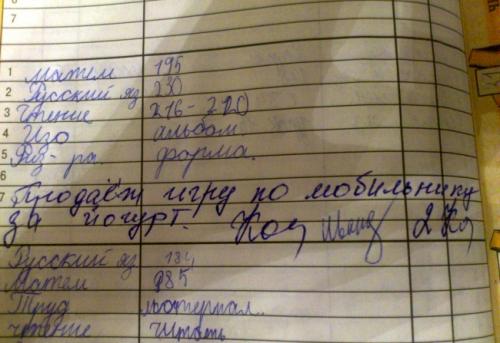 6
7
1 матем 195
2 Русский яз 230
3 Чтение 216-220
4 Изо альбом
5 Физ-ра. форма.
6
7 Продаёт игру по мобильнику
за йогурт.
Русский яз 184
Матем 285
Труд материал..
чтение Читать